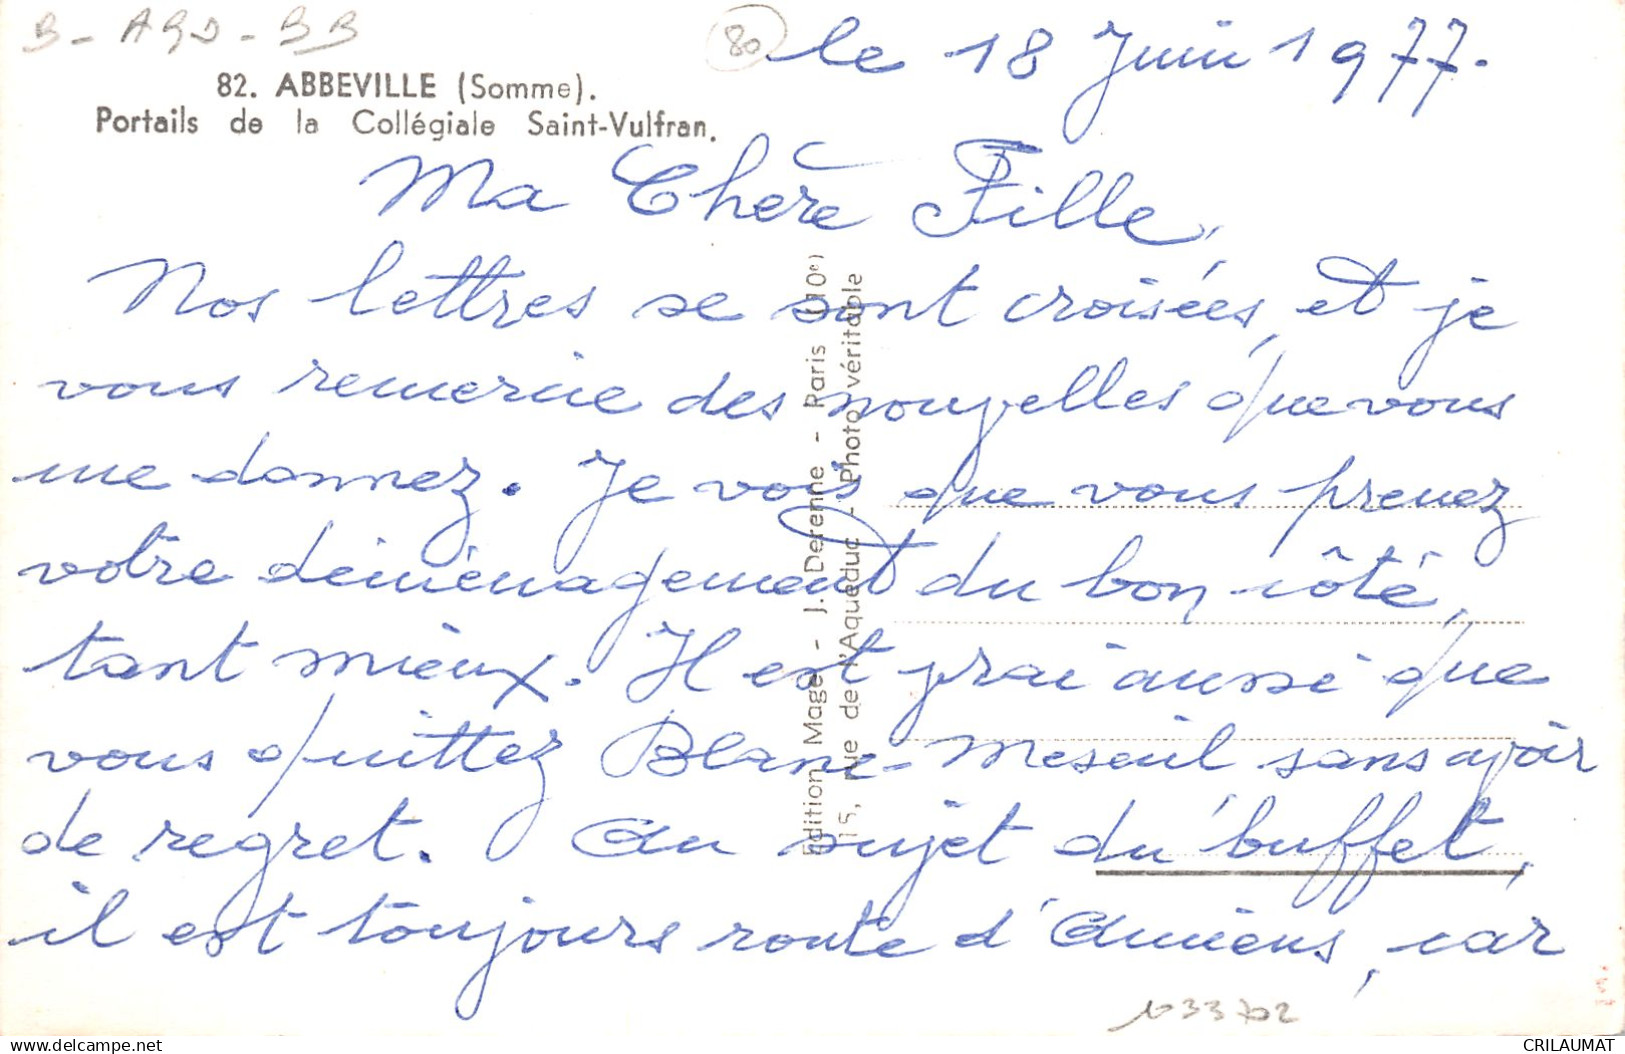 B - AGD - BB
80
le 18 Juin 1977.
82. ABBEVILLE (Somme).
Portails de la Collégiale Saint-Vulfran.
Ma Chère Fille,
Nos lettres se sont croisées, et je
vous remercie des nouvelles que vous
me donnez. Je vois que vous prenez
votre déménagement du bon côté,
tant mieux. Il est vrai aussi que
vous quittez Blanc-Mesnil sans avoir
de regret. Au sujet du buffet,
il est toujours route d'Amiens, car
Edition Mage - J. Derenne - Paris (10e)
15, rue de l'Aqueduc - Photo véritable
delcampe.net
CRILAUMAT